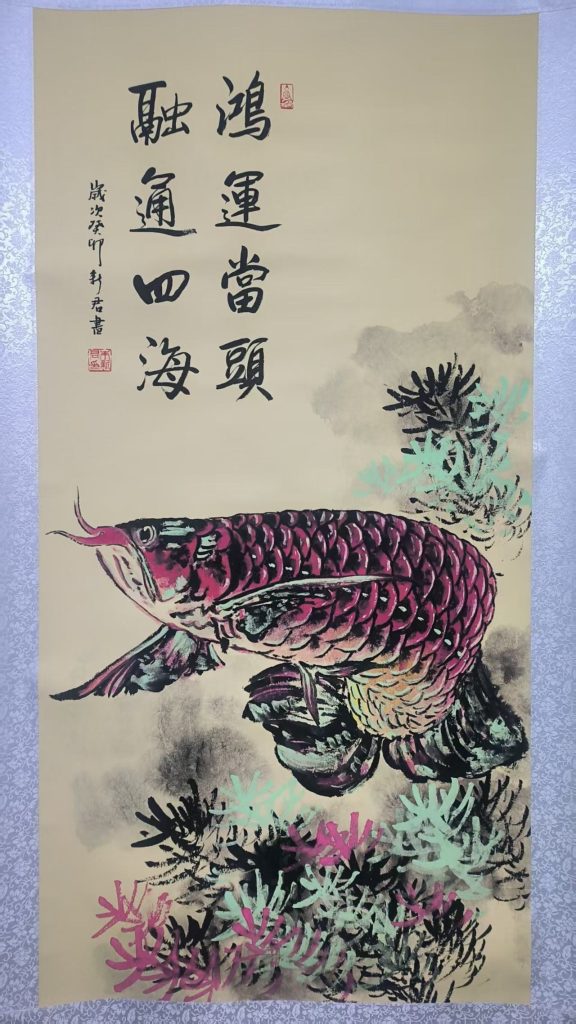 鴻運當頭
融通四海
歲次癸卯 新君書